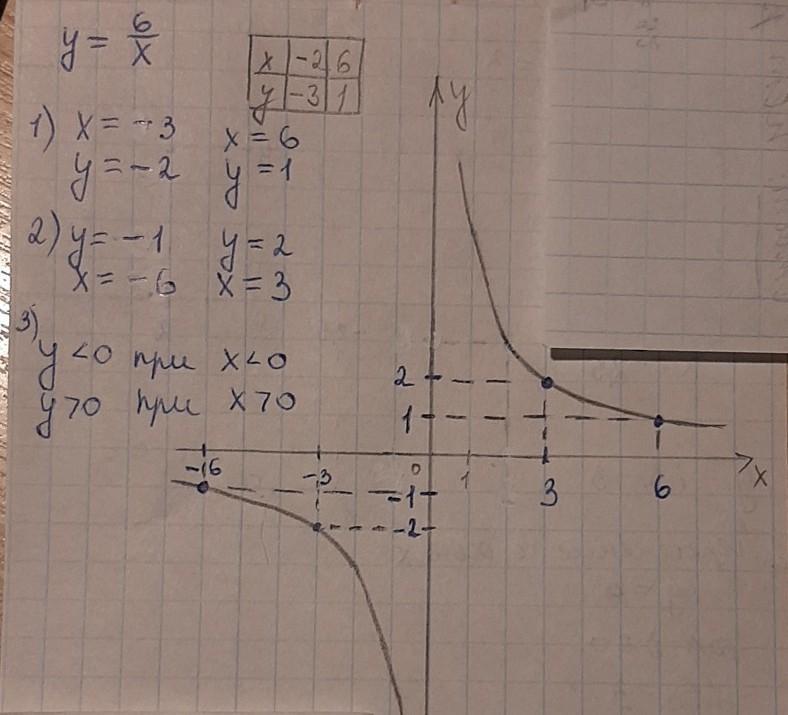 y = 6/x
x -2 6
y -3 1
1) x = -3 x = 6
y = -2 y = 1
2) y = -1 y = 2
x = -6 x = 3
3)
y < 0 при x < 0
y > 0 при x > 0
y
2
1
-6 -3 0 1 3 6 x
-1
-2